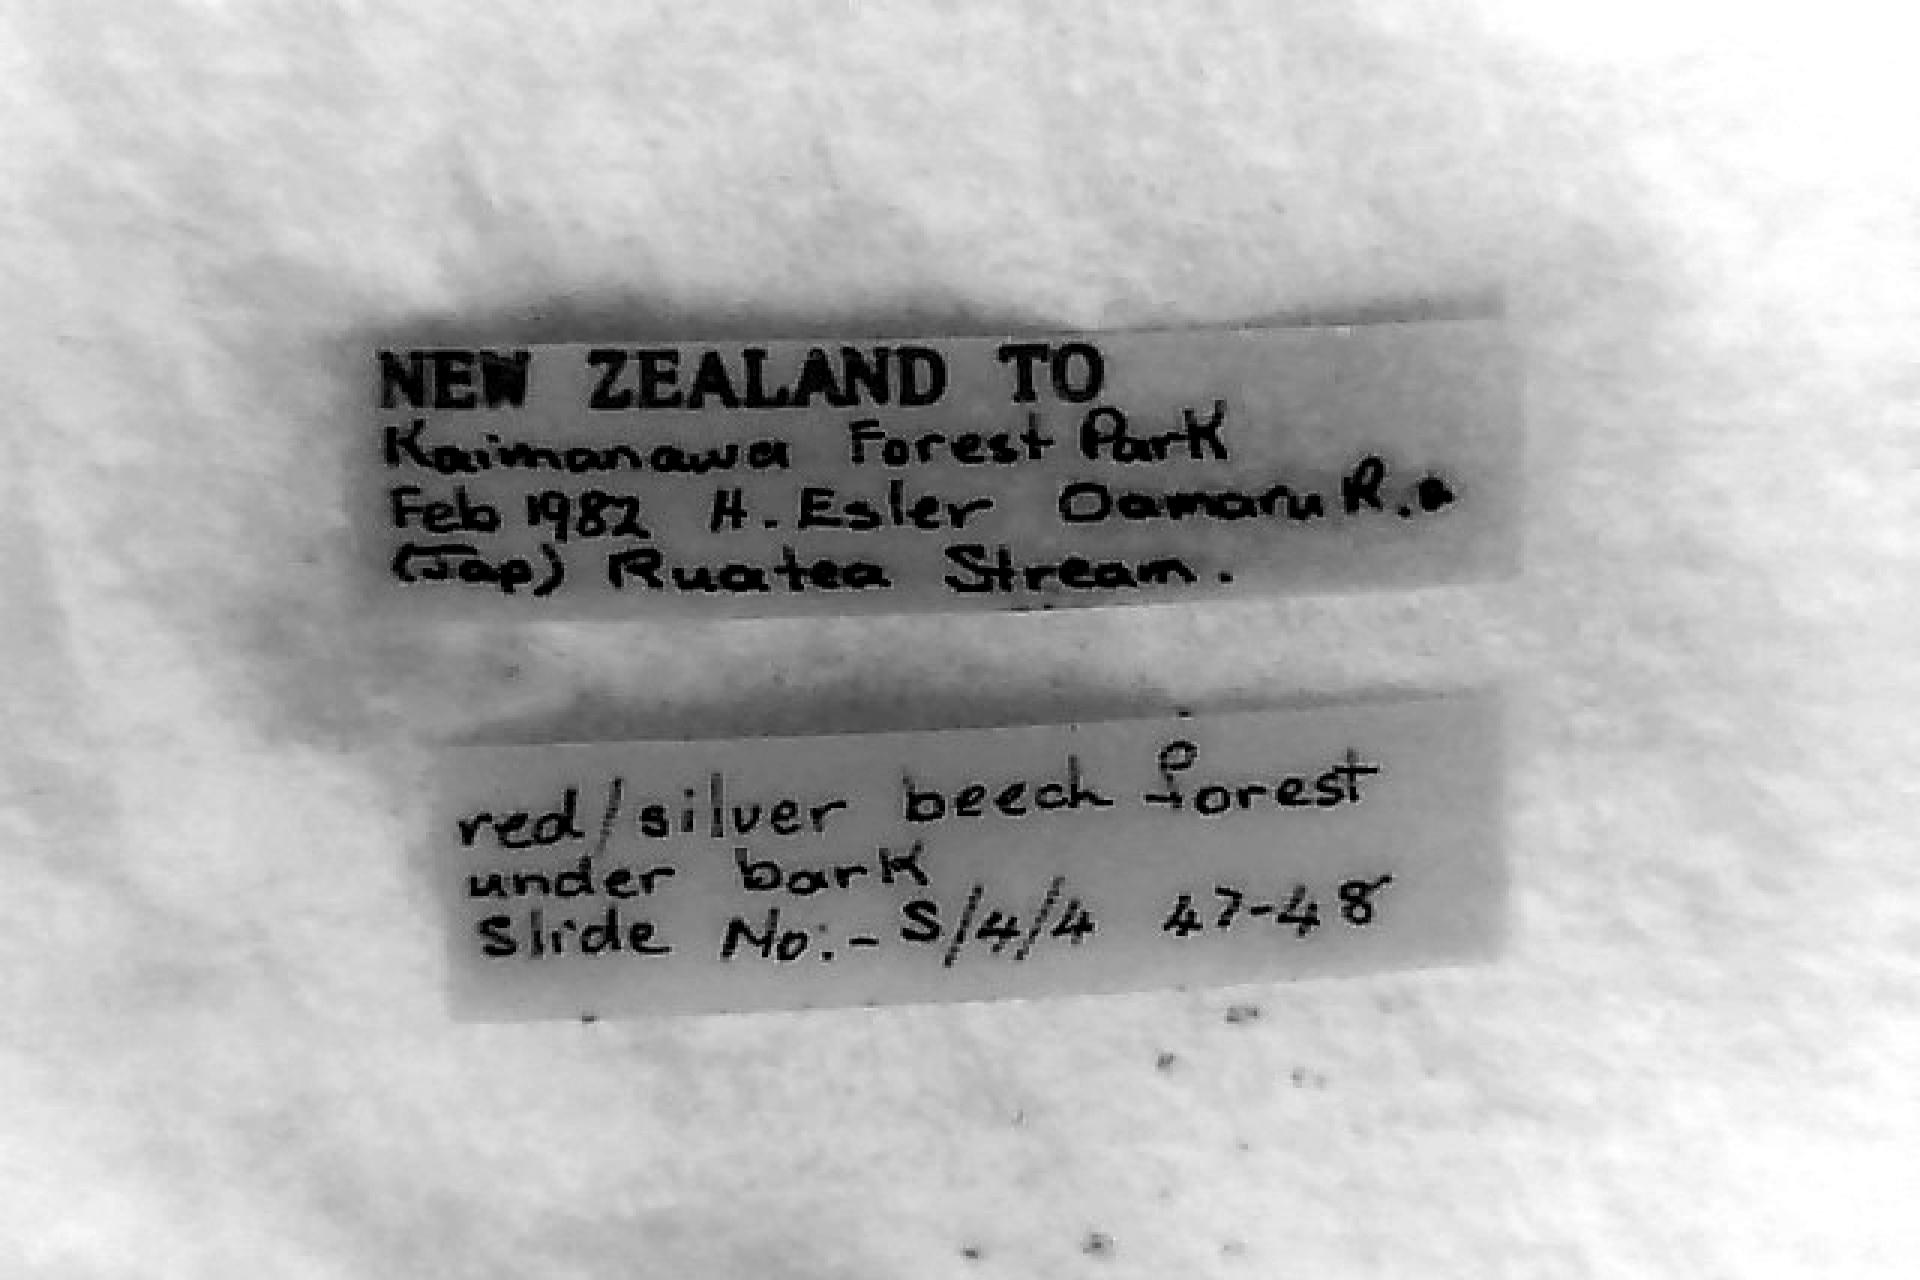 NEW ZEALAND TO
Kaimanawa Forest Park
Feb 1982 H. Esler Oamaru R.
(Jap) Ruatea Stream.
red/silver beech forest
under bark
Slide No:- S/4/4 47-48